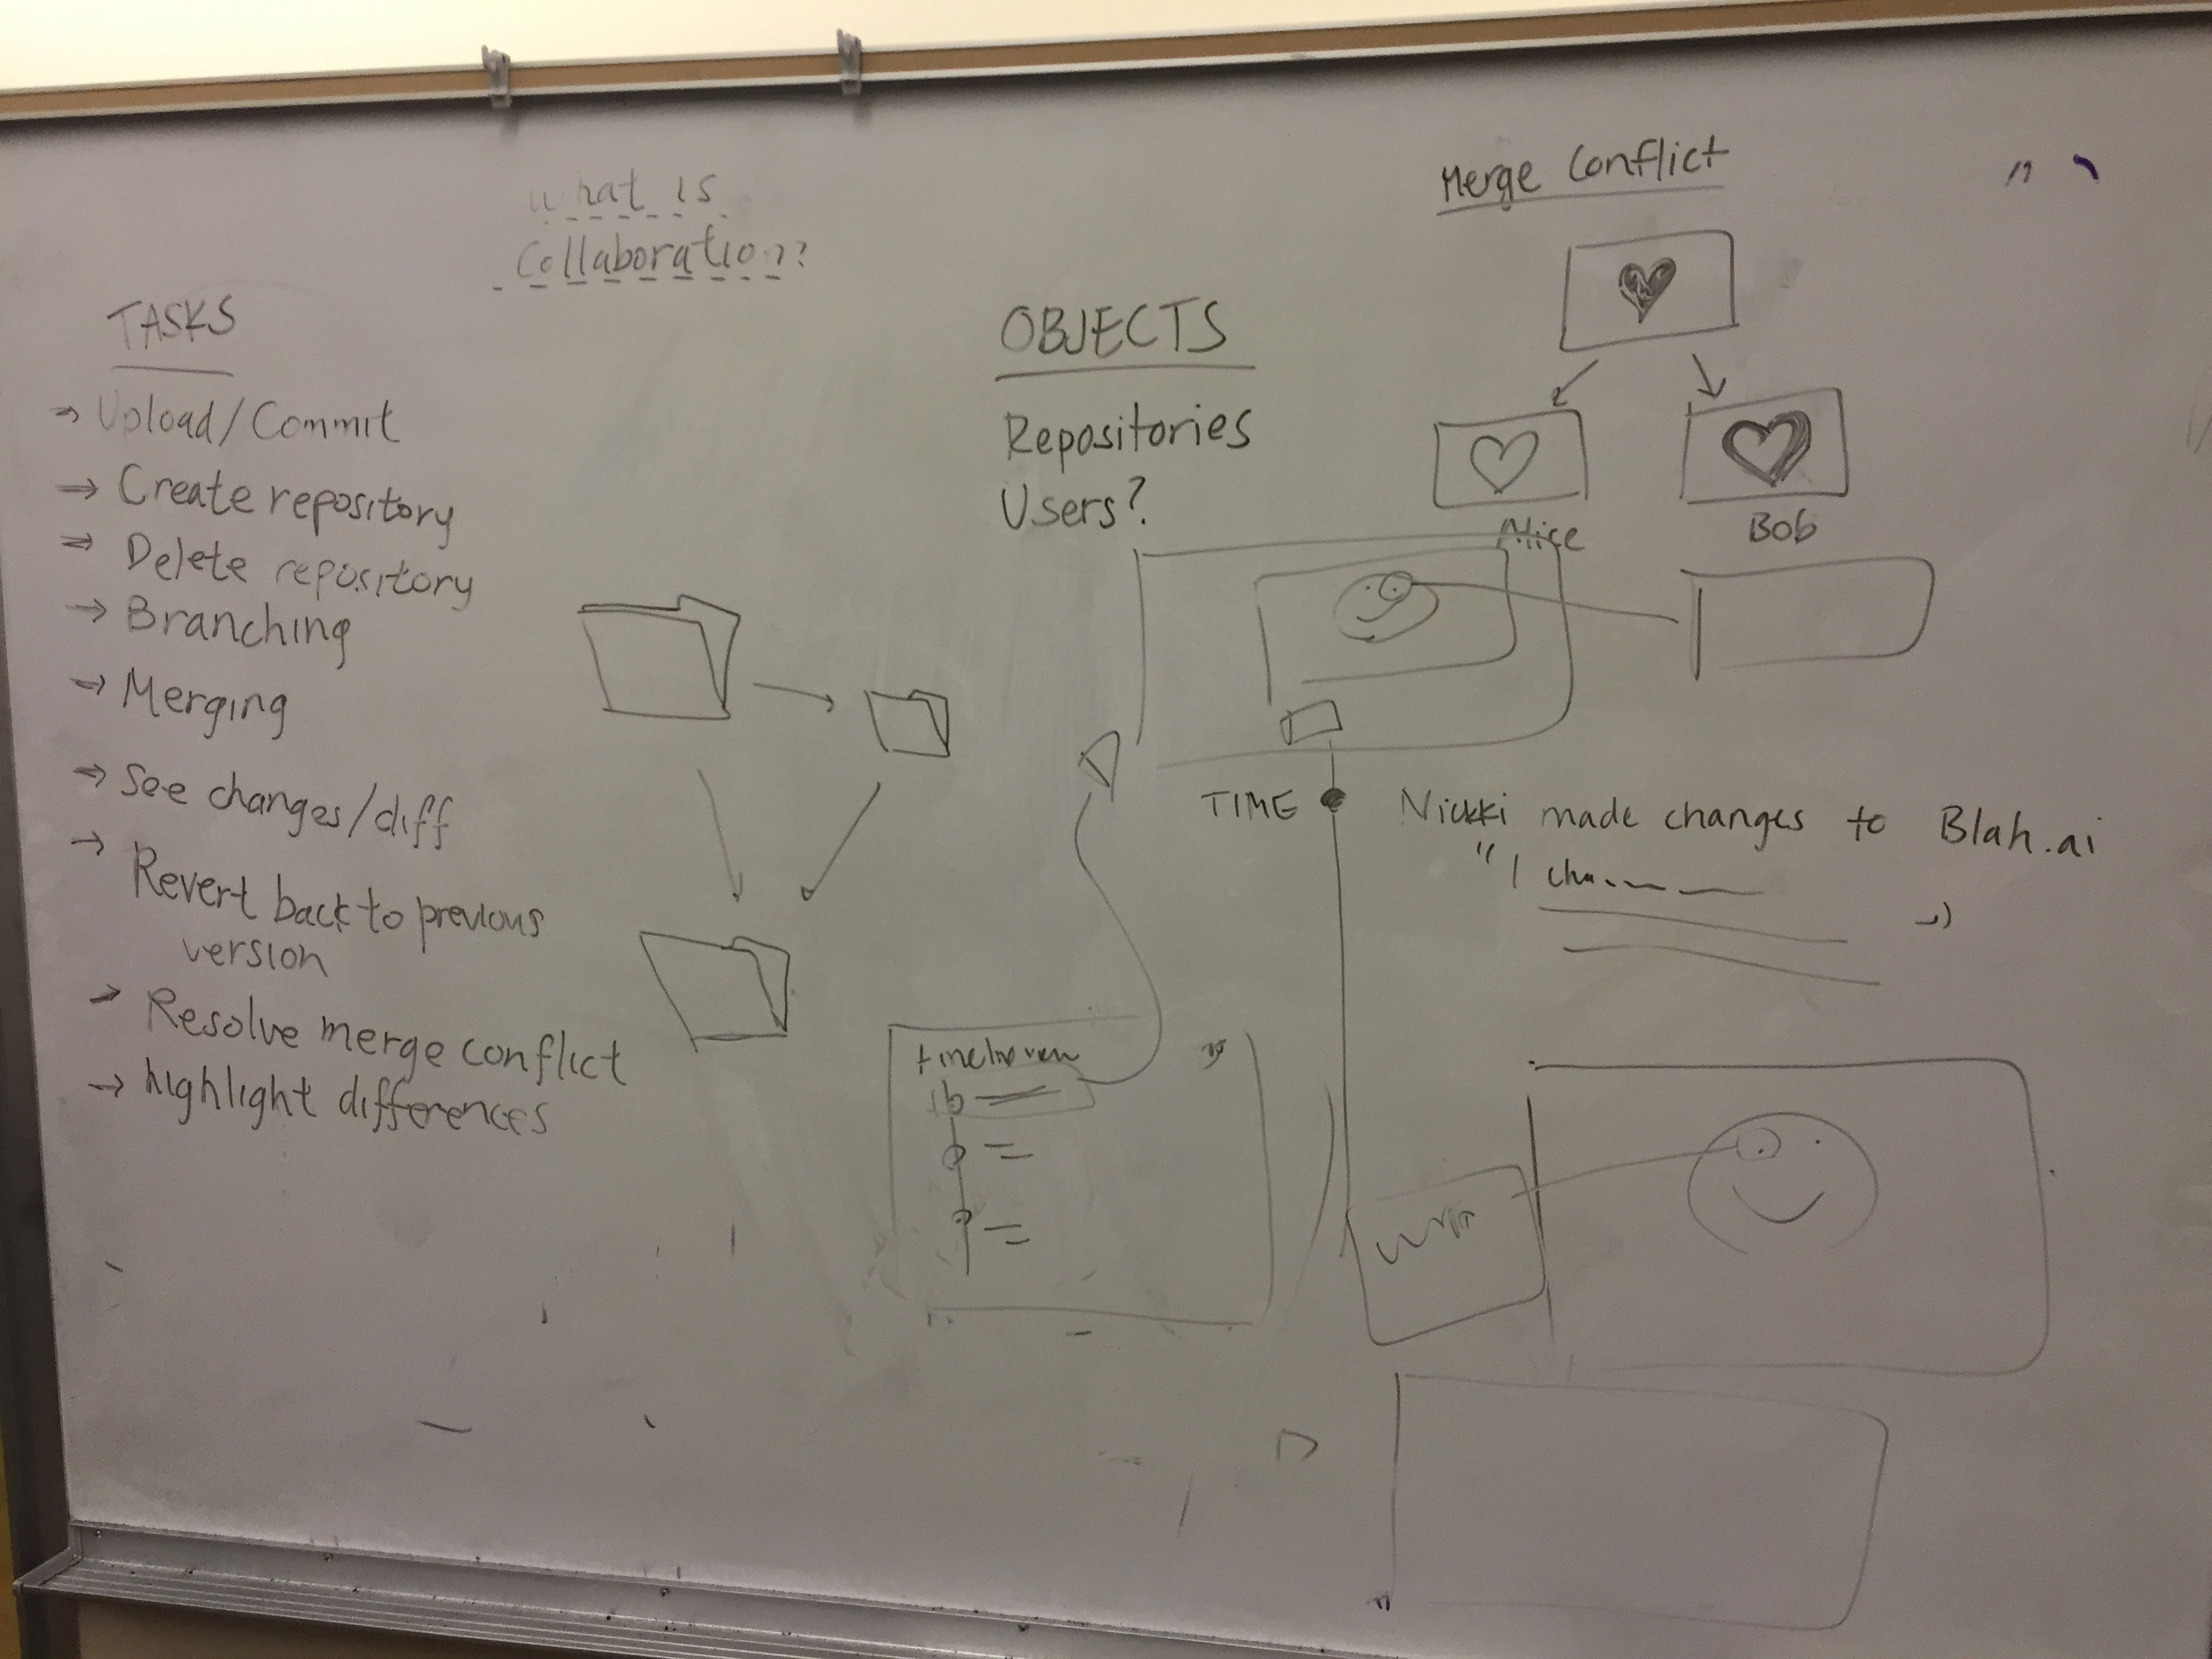 What is
Collaboration?
TASKS
→ Upload/Commit
→ Create repository
→ Delete repository
→ Branching
→ Merging
→ See changes/diff
→ Revert back to previous
version
→ Resolve merge conflict
→ highlight differences
OBJECTS
Repositories
Users?
Merge Conflict
Alice
Bob
TIME
Nickki made changes to Blah.ai
"I cha